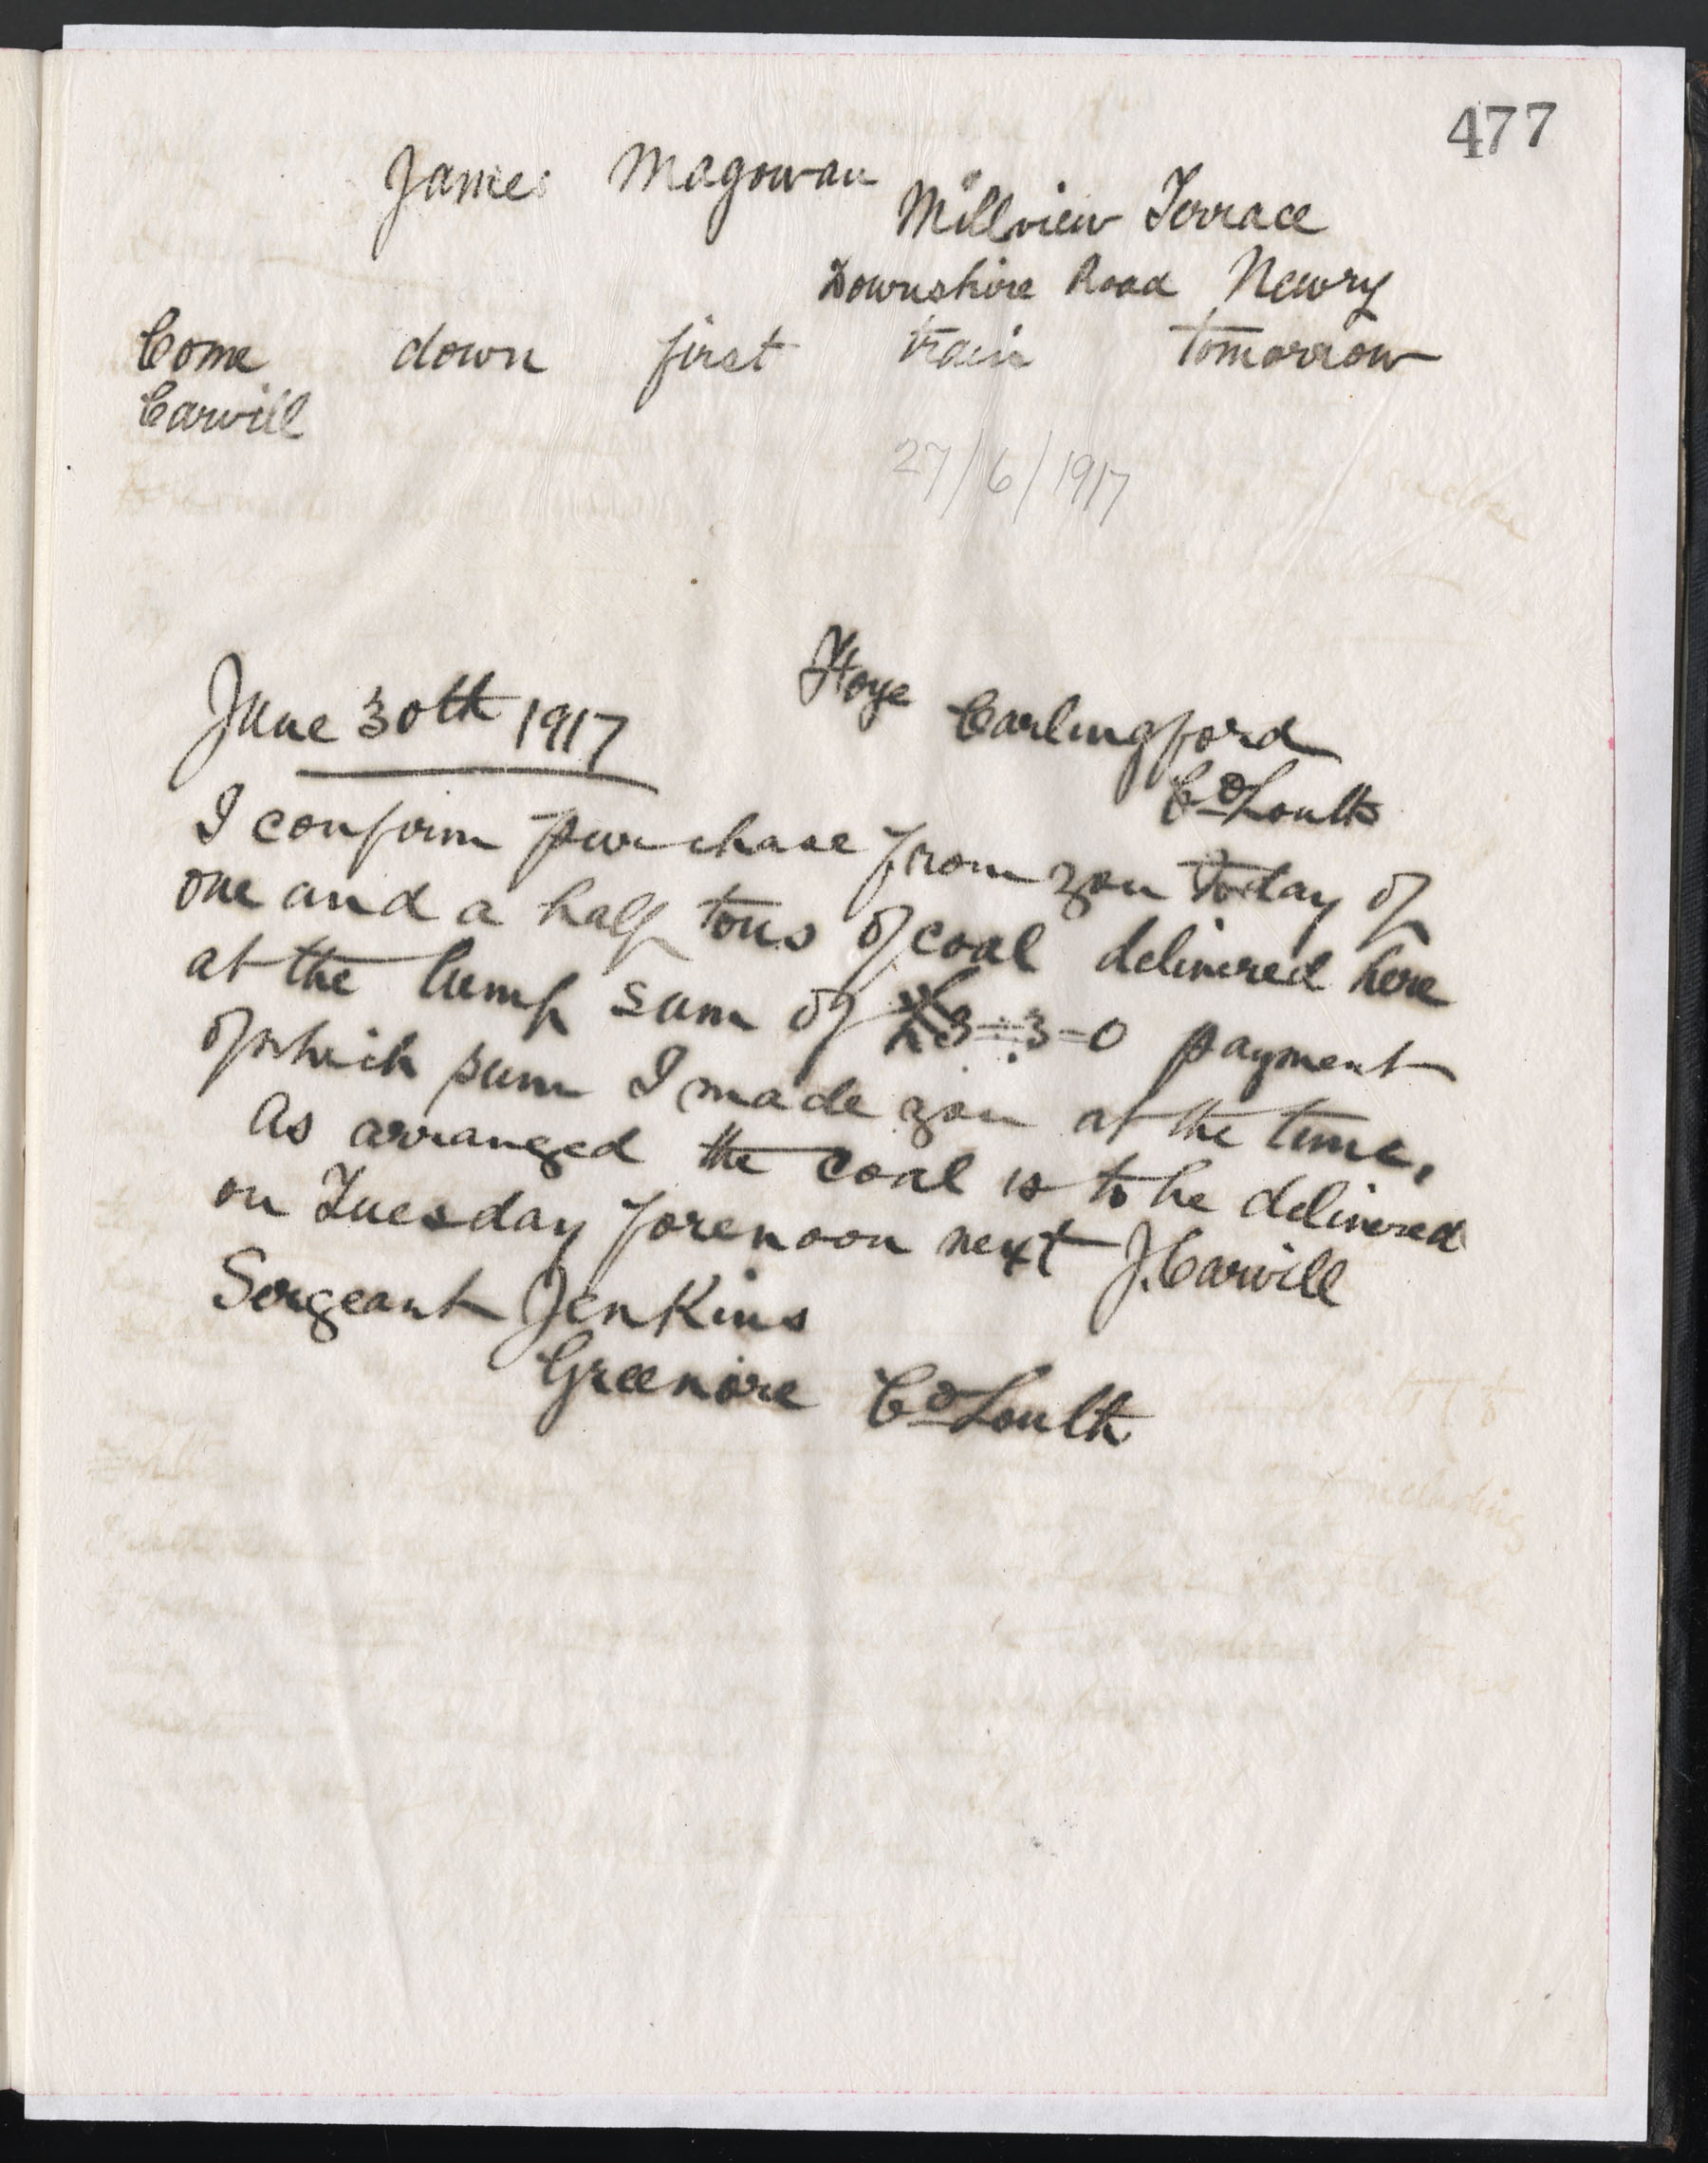 477
James Magowan
Millview Terrace
Downshire Road Newry
Come down first train tomorrow
Carvill
27/6/1917
June 30th 1917
Carlingford
Co Louth
I confirm purchase from you today of
one and a half tons of coal delivered here
at the lump sum of £3=3=0 payment
of which sum I made you at the time,
As arranged the coal is to be delivered
on Tuesday forenoon next J. Carvill
Sergeant Jenkins
Greenore Co Louth